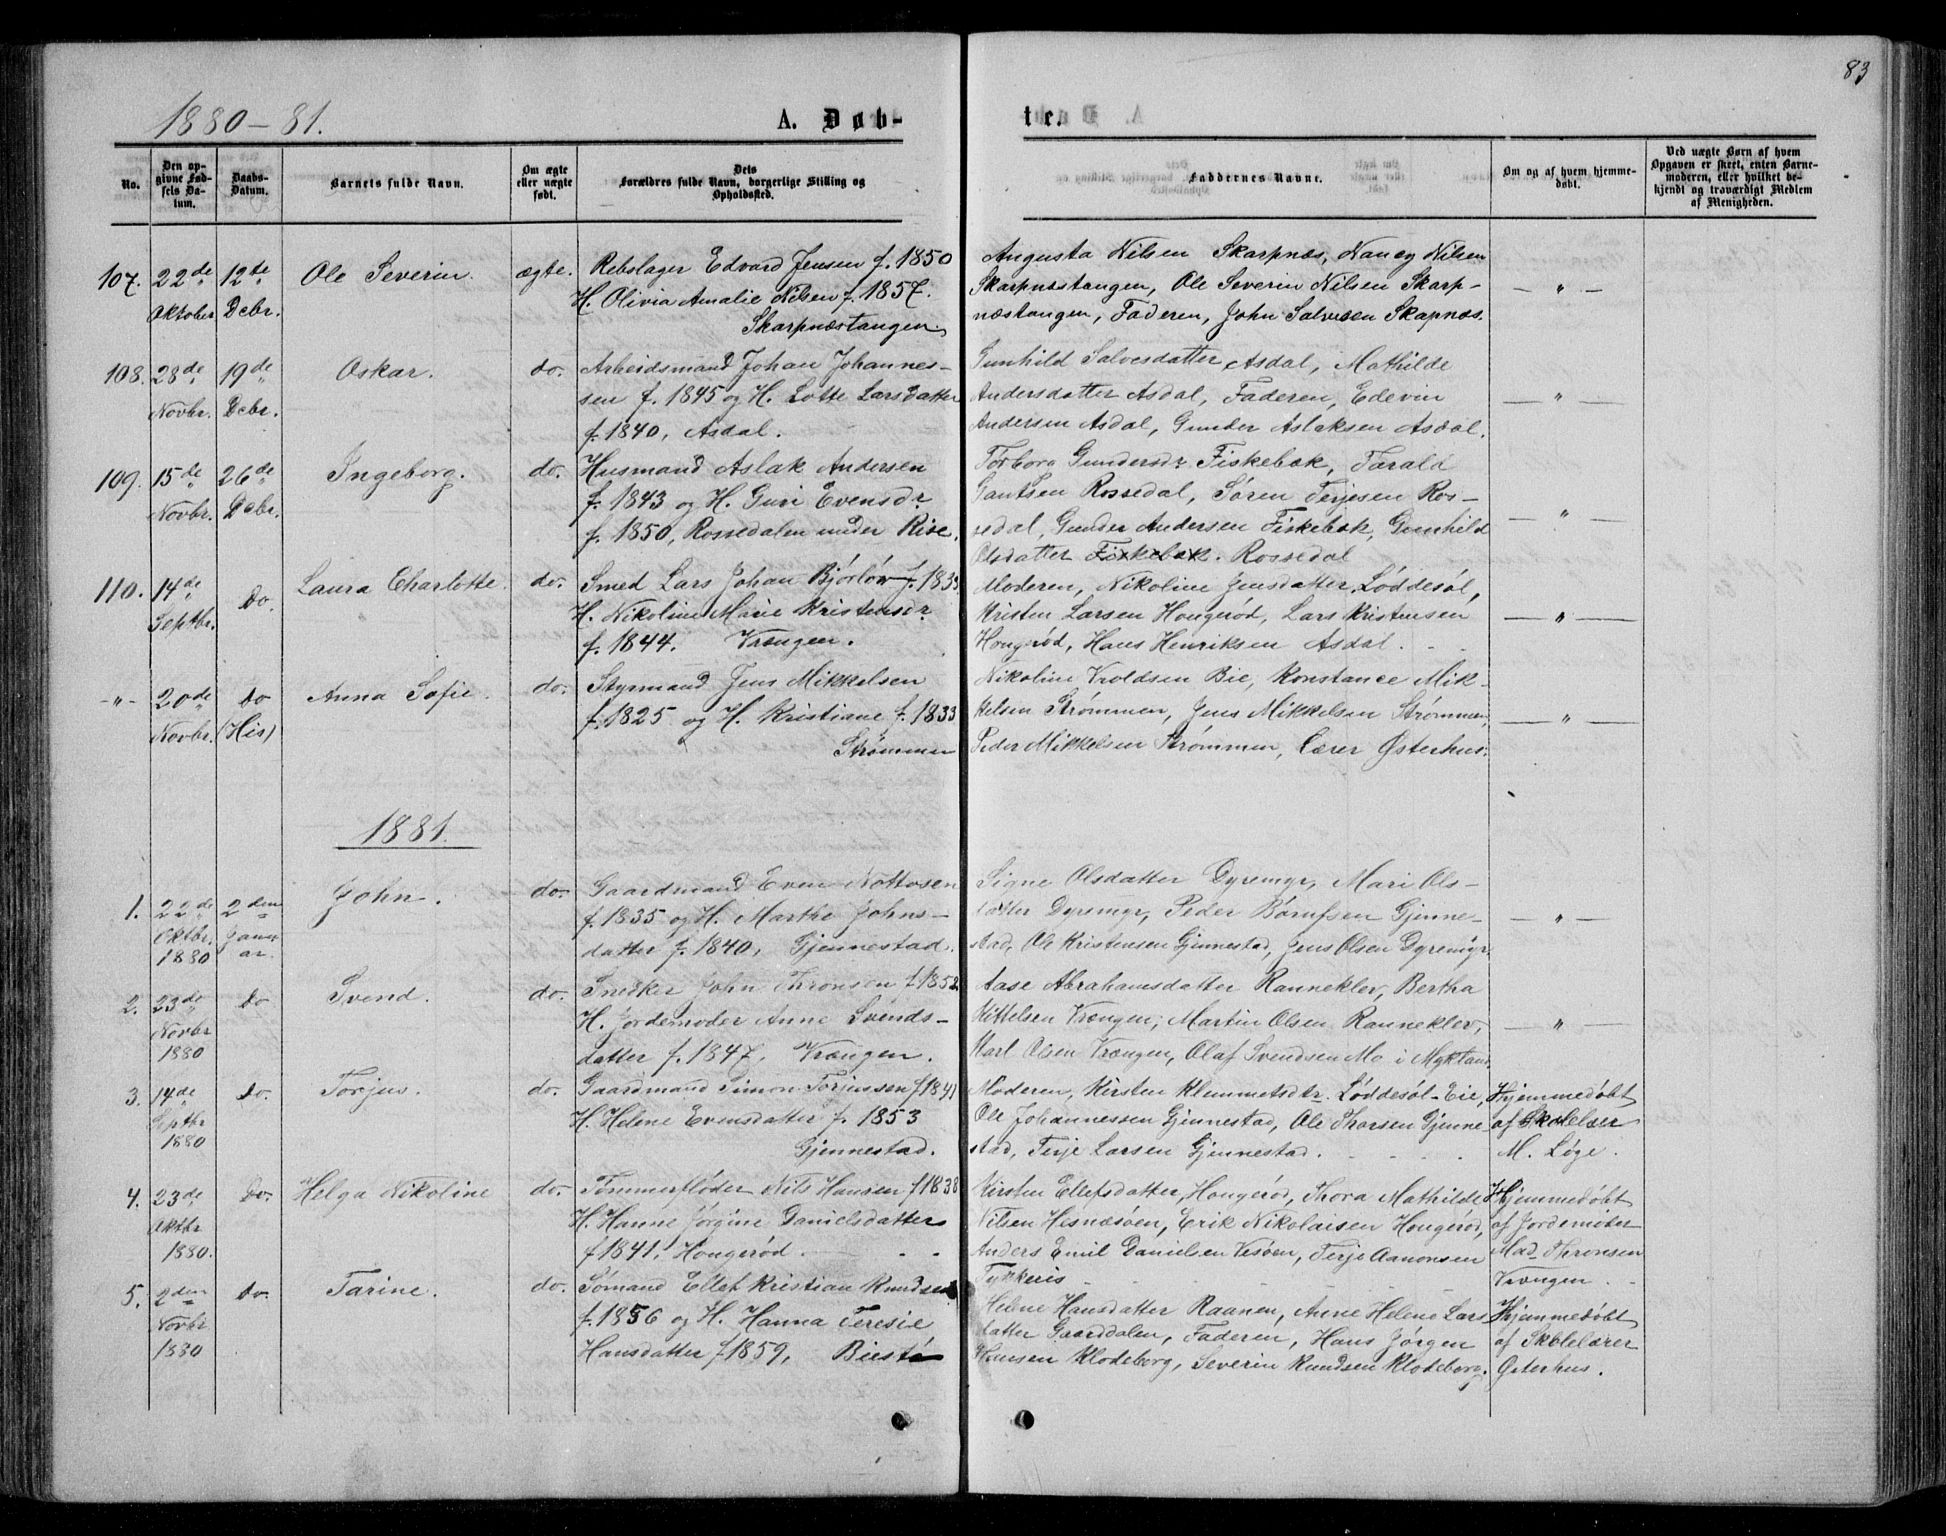 83
1880-81.
A. Døb-
te.
No.
Den opgivne Fødsels Datum.
Daabs-Datum.
Barnets fulde Navn.
Om ægte eller uægte født.
Dets Forældres fulde Navn, borgerlige Stilling og Opholdssted.
Faddernes Navne.
Om og af hvem hjemmedøbt.
Ved uægte Børn af hvem Opgaven er skeet, enten Barnemoderen, eller hvilket bekjendt og troværdigt Medlem af Menigheden.
107. 22de Oktober 12te Debr. Ole Severin. ægte.
Rebslager Edvard Jensen f. 1850
H. Olivia Amalie Nilsen f. 1857.
Skarpnæstangen.
Augusta Nilsen Skarpnæs, Nancy Nilsen
Skarpnæstangen, Ole Severin Nilsen Skarp-
næstangen, Faderen, John Salvesen Skapnæs.
— " —
108. 28de Novbr. 19de Debr. Oskar. do.
Arbeidsmand Johan Johannes-
sen f. 1845 og H. Lotte Larsdatter
f. 1840, Asdal.
Gunhild Salvesdatter Asdal, Mathilde
Andersdatter Asdal, Faderen, Edevin
Andersen Asdal, Gunder Aslaksen Asdal.
— " —
109. 15de Novbr. 26de Debr. Ingeborg. do.
Husmand Aslak Andersen
f. 1843 og H. Guri Evensdr
f. 1850, Rossedalen under Rise.
Torbora Gundersdr Fiskebæk, Tarald
Gautsen Rossedal, Søren Terjesen Ros-
sedal, Gunder Andersen Fiskebæk, Gunhild
Olsdatter Fiskebæk. Rossedal
— " —
110. 14de Septbr. Do. Laura Charlotte. do.
Smed Lars Johan Bjørløv f. 1833
H. Nikoline Marie Kristensdr
f. 1844. Vrængen.
Moderen, Nikoline Jensdatter Løddesøl,
Kristen Larsen Hougerød, Lars Kristensen
Hougerød, Hans Henriksen Asdal.
— " —
-"- 20de Novbr. Do (His) Anna Sofie. do.
Styrmand Jens Mikkelsen
f. 1825 og H. Kristiane f. 1833
Strømmen
Nikoline Troldsen Bie, Konstance Mik-
kelsen Strømmen, Jens Mikkelsen Strømmen,
Peder Mikkelsen Strømmen, Lærer Østerhus.
— " —
1881.
1. 22de Oktbr. 1880 2den Januar. John. do.
Gaardmand Even Nottosen
f. 1835 og H. Marthe Johns-
datter f. 1840, Gjennestad.
Signe Olsdatter Dyremyr, Mari Ols-
datter Dyremyr, Peder Børufsen Gjenne-
stad, Ole Kristensen Gjennestad, Jens Olsen Dyremyr.
— " —
2. 23de Novbr 1880 Do Svend. do.
Snedker John Thronsen f. 1852
H. Jordemoder Anne Svends-
datter f. 1847, Vrængen.
Aase Abrahamsdatter Ranneklev, Bertha
Kittelsen Vrængen, Martin Olsen Ranneklev,
Karl Olsen Vrængen, Olaf Svendsen Mo i Mykland
— " —
3. 14de Septbr 1880 Do. Torjus. do.
Gaardmand Simon Torjussen f 1841
H. Helene Evensdatter f. 1853
Gjennestad.
Moderen, Kirsten Klemmetsdtr. Løddesøl-Eie,
Ole Johannessen Gjennestad, Ole Thorsen Gjenne-
stad, Terje Larsen Gjennestad.
Hjemmedøbt
af Skolelær
M. Løge.
4. 23de Oktbr 1880. Do. Helga Nikoline do.
Tømmerfløder Nils Hansen f 1838
H. Hanne Jørgine Danielsdatter
f 1841, Hougerød.
Kirsten Ellefsdatter Hougerød, Thora Mathilde
Nilsen Hisnæsøen, Erik Nikolaisen Hougerød,
Anders Emil Danielsen Vesøen, Terje Aanonsen
Tykkeris
Hjemmedøbt
af Jordemoder
Mad. Thronsen
Vrængen.
5. 2den Novbr 1880 Do. Tarine. do.
Sømand Ellef Kristian Knudsen
f. 1856 og H. Hanna Teresie
Hansdatter f 1859,
Helene Hansdatter Raanen, Anne Helene Lars
datter Gaarddalen, Faderen, Hans Jørgen
Hansen Klodeborg, Severin Knudsen Klodeborg.
Hjemmedøbt
af Skolelærer
Østerhus.